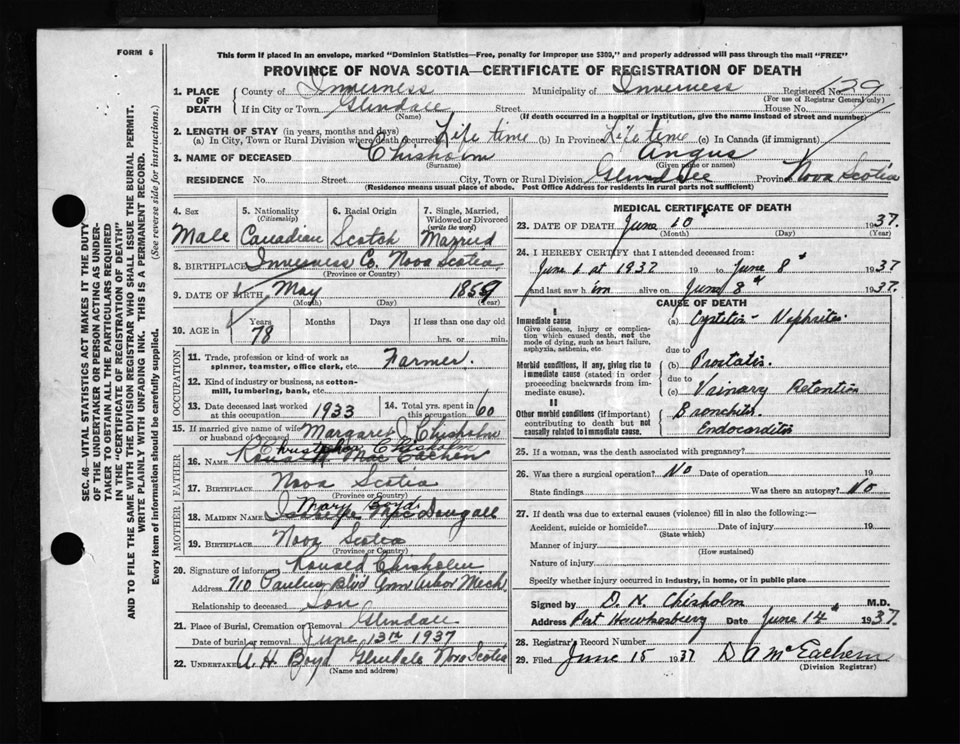 FORM 6
This form if placed in an envelope, marked "Dominion Statistics—Free, penalty for improper use $300," and properly addressed will pass through the mail "FREE"
PROVINCE OF NOVA SCOTIA—CERTIFICATE OF REGISTRATION OF DEATH
SEC. 46—VITAL STATISTICS ACT MAKES IT THE DUTY
OF THE UNDERTAKER OR PERSON ACTING AS UNDER-
TAKER TO OBTAIN ALL THE PARTICULARS REQUIRED
IN THE "CERTIFICATE OF REGISTRATION OF DEATH"
AND TO FILE THE SAME WITH THE DIVISION REGISTRAR WHO SHALL ISSUE THE BURIAL PERMIT.
WRITE PLAINLY WITH UNFADING INK. THIS IS A PERMANENT RECORD.
Every item of information should be carefully supplied. (See reverse side for instructions.)
1. PLACE OF DEATH County of Inverness Municipality of Inverness Registered No. 129
(For use of Registrar General only)
If in City or Town Glendale Street House No.
(Name) (If death occurred in a hospital or institution, give the name instead of street and number)
2. LENGTH OF STAY (in years, months and days)
(a) In City, Town or Rural Division where death occurred Life time (b) In Province Life time (c) In Canada (if immigrant)
3. NAME OF DECEASED Chisholm Angus
(Surname) (Given name or names)
RESIDENCE No. Street City, Town or Rural Division Glendale Province Nova Scotia
(Residence means usual place of abode. Post Office Address for residents in rural parts not sufficient)
4. Sex Male
5. Nationality (Citizenship) Canadian
6. Racial Origin Scotch
7. Single, Married, Widowed or Divorced (write the word) Married
8. BIRTHPLACE Inverness Co. Nova Scotia
(Province or Country)
9. DATE OF BIRTH May 1859
(Month) (Day) (Year)
10. AGE in Years 78 Months Days If less than one day old hrs. or min.
OCCUPATION
11. Trade, profession or kind of work as spinner, teamster, office clerk, etc. Farmer.
12. Kind of industry or business, as cotton-mill, lumbering, bank, etc.
13. Date deceased last worked at this occupation 1933
14. Total yrs. spent in this occupation 60
15. If married give name of wife or husband of deceased Margaret J Chisholm
FATHER
Christopher Chisholm
16. Name MacEachen
17. BIRTHPLACE Nova Scotia
(Province or Country)
MOTHER
Mary Boyd
18. MAIDEN NAME MacDougall
19. BIRTHPLACE Nova Scotia
(Province or Country)
20. Signature of informant Ronald Chisholm
Address 710 Pauline Blvd Ann Arbor Mich
Relationship to deceased Son
21. Place of Burial, Cremation or Removal Glendale
Date of burial or removal June 13th 1937
22. UNDERTAKER A. H. Boyd Glendale Nova Scotia
(Name and address)
MEDICAL CERTIFICATE OF DEATH
23. DATE OF DEATH June 10th 1937.
(Month) (Day) (Year)
24. I HEREBY CERTIFY that I attended deceased from:
June 1 at 1937 19 to June 8th 1937
and last saw him alive on June 8th 1937.
CAUSE OF DEATH
I
Immediate cause
Give disease, injury or complication which caused death, not the mode of dying, such as heart failure, asphyxia, asthenia, etc
(a) Cystitis - Nephritis.
due to
Morbid conditions, if any, giving rise to immediate cause (stated in order proceeding backwards from immediate cause).
(b) Prostatis.
due to
(c) Retention
II
Other morbid conditions (if important) contributing to death but not causally related to immediate cause.
Bronchitis.
Endocarditis
25. If a woman, was the death associated with pregnancy?
26. Was there a surgical operation? No Date of operation 19
State findings Was there an autopsy? No
27. If death was due to external causes (violence) fill in also the following:—
Accident, suicide or homicide? Date of injury 19
(State which)
Manner of injury
(How sustained)
Nature of injury
Specify whether injury occurred in industry, in home, or in public place
Signed by D. N Chisholm M.D.
Address Port Hawkesbury Date June 14th 1937.
28. Registrar's Record Number
29. Filed June 15 1937 D A McEachern
(Division Registrar)